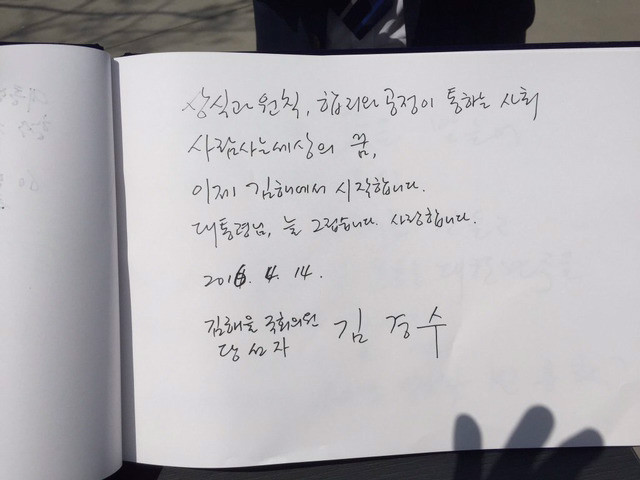 상식과 원칙, 합리와 공정이 통하는 사회
사람사는세상의 꿈,
이제 김해에서 시작합니다.
대통령님, 늘 그립습니다. 사랑합니다.
2016. 4. 14.
김해을 국회의원
당선자 김경수